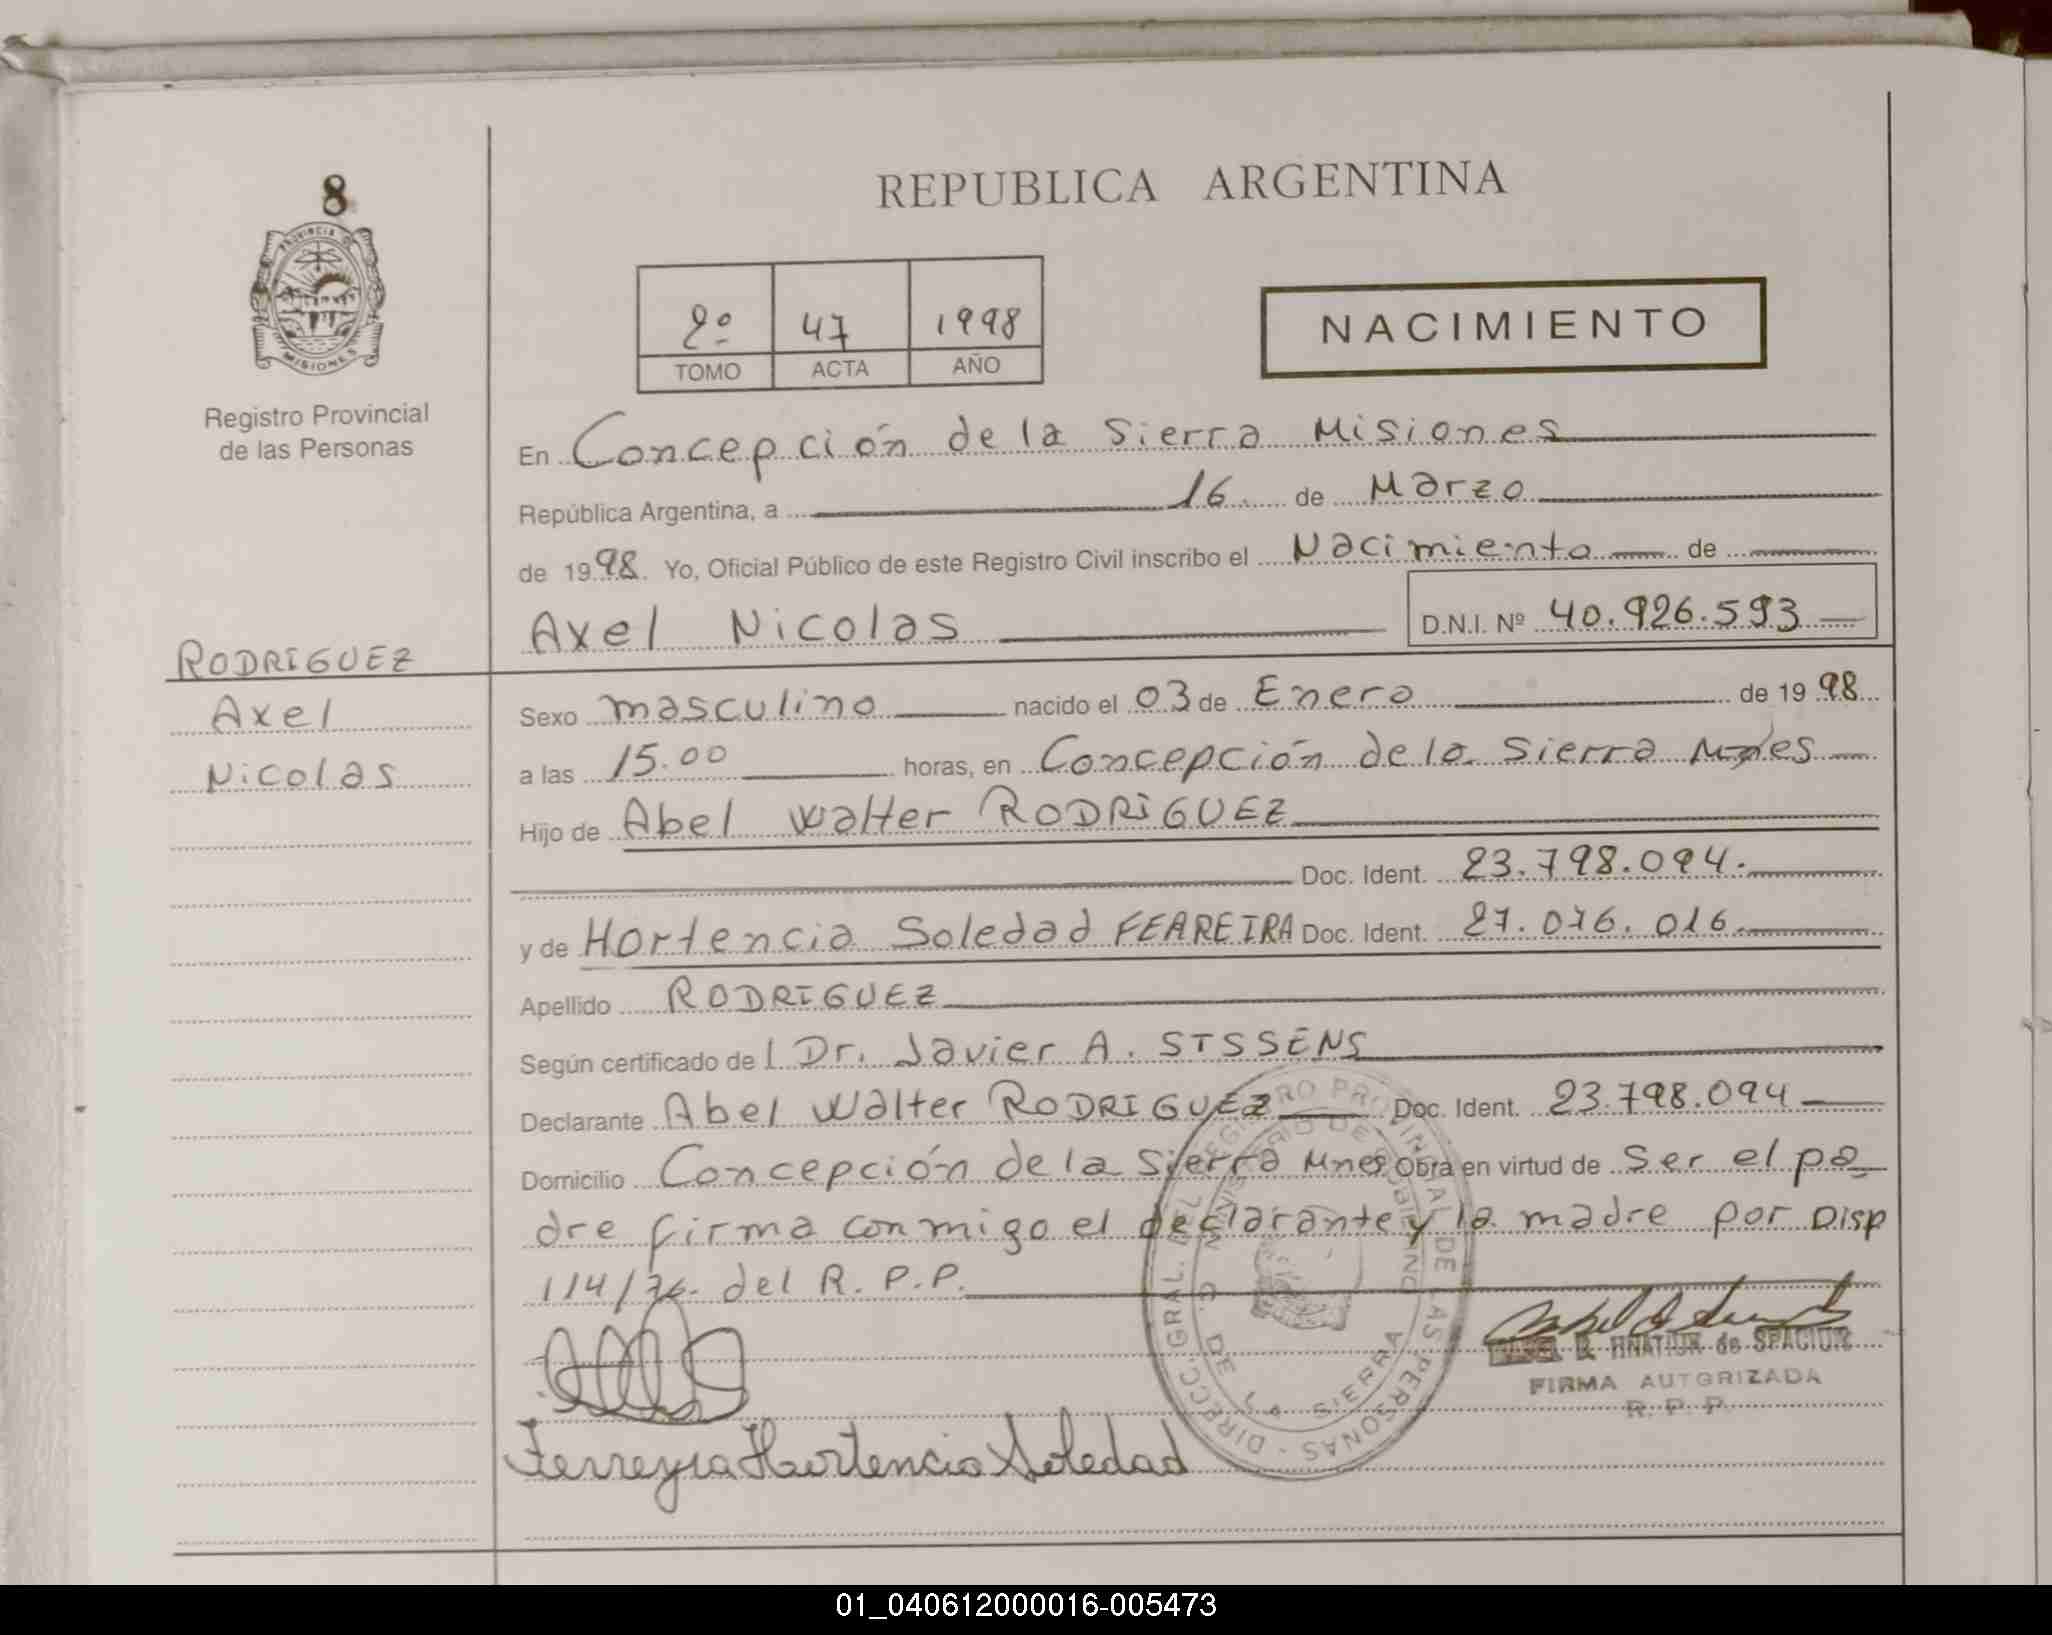 8
PROVINCIA DE
MISIONES
Registro Provincial
de las Personas
REPUBLICA ARGENTINA
2º 47 1998
TOMO ACTA AÑO
NACIMIENTO
En Concepción de la Sierra Misiones
República Argentina, a 16 de Marzo
de 1998. Yo, Oficial Público de este Registro Civil inscribo el Nacimiento de
Axel Nicolas D.N.I. Nº 40.926.593
RODRIGUEZ
Axel
Nicolas
Sexo masculino nacido el 03 de Enero de 1998
a las 15.00 horas, en Concepción de la Sierra Mnes
Hijo de Abel Walter RODRIGUEZ
Doc. Ident. 23.798.094.
y de Hortencia Soledad FEAREIRA Doc. Ident. 27.076.016
Apellido RODRIGUEZ
Según certificado de l Dr. Javier A. STSSENS
Declarante Abel Walter RODRIGUEZ Doc. Ident. 23.798.094
Domicilio Concepción de la Sierra Mnes Obra en virtud de Ser el pa_
dre firma conmigo el declarante y la madre por Disp
114/76 del R. P. P.
DIRECC. GRAL. DEL REGISTRO PROVINCIAL DE LAS PERSONAS
MINISTERIO DE GOBIERNO
DE LA SIERRA
de SPACIUK
FIRMA AUTORIZADA
R. P. P.
Ferreyra Hortencia Soledad
01_040612000016-005473